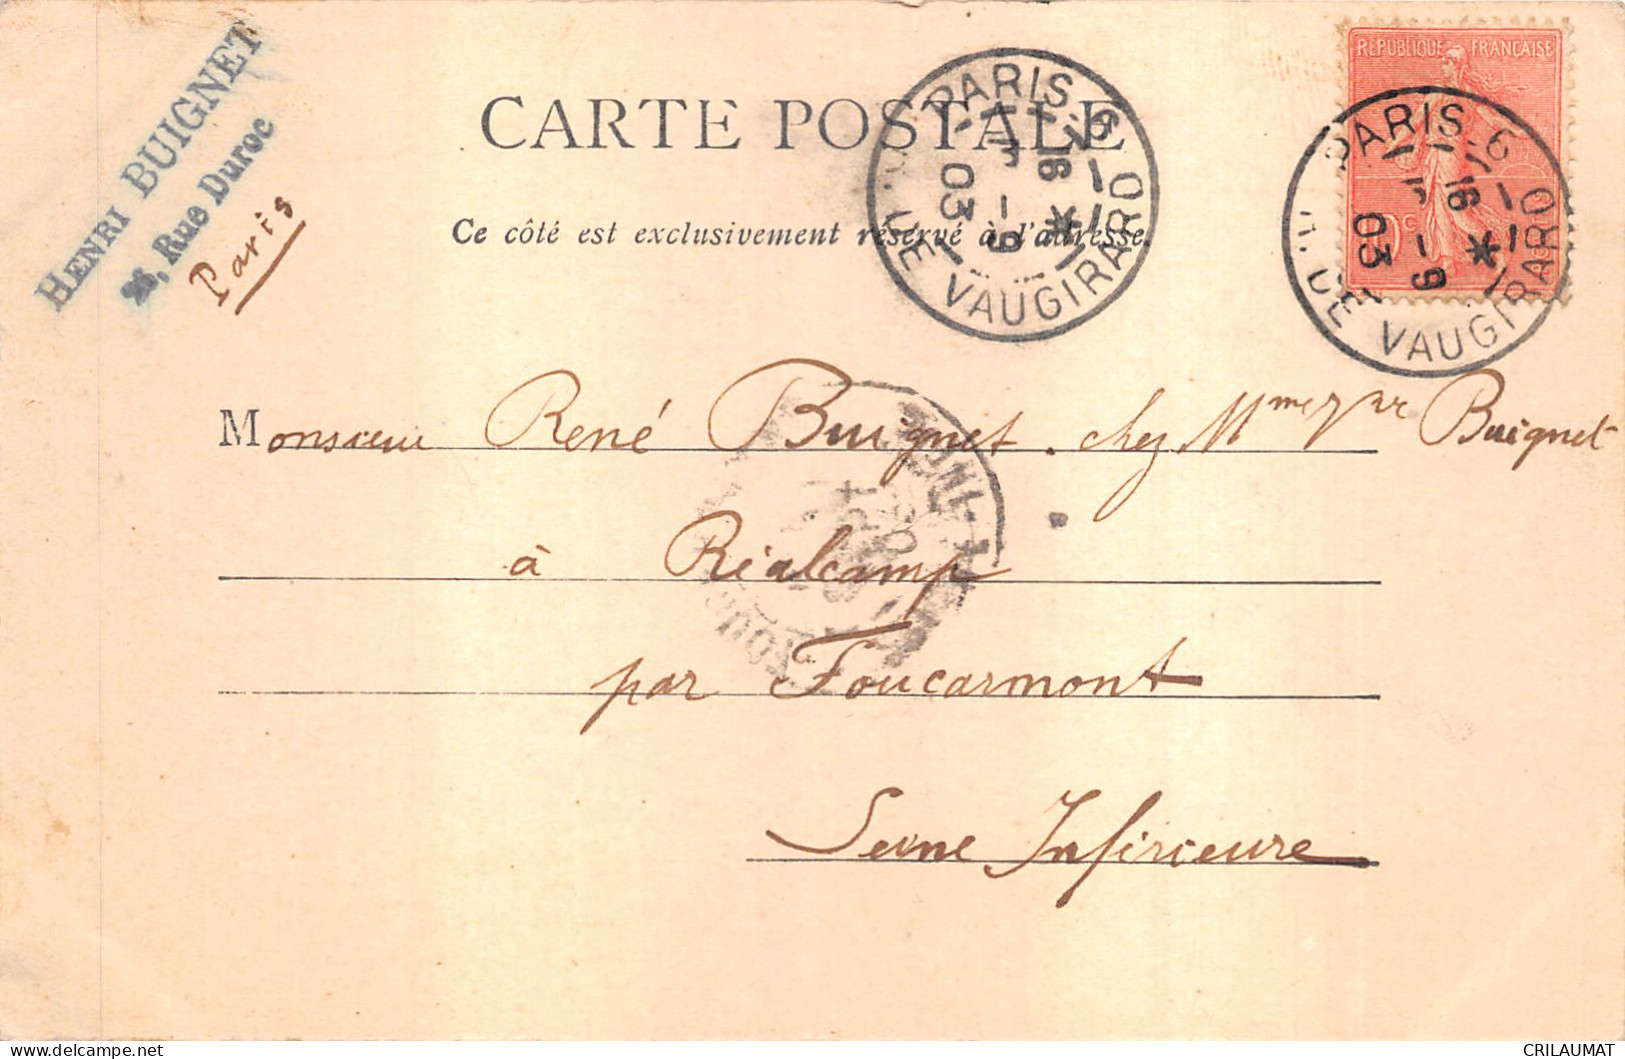 HENRI BUIGNET
26, Rue Duroc
Paris
CARTE POSTALE
Ce côté est exclusivement réservé à l'adresse.
REPUBLIQUE FRANÇAISE
10c
PARIS - 6
R. DE VAUGIRARD
16 * 
-9
03
PARIS - 6
R. DE VAUGIRARD
16 *
-9
03
Monsieur René Buignet. chez Mme Buignet
à Réalcamp
par Foucarmont
Seine Inférieure
CRILAUMAT